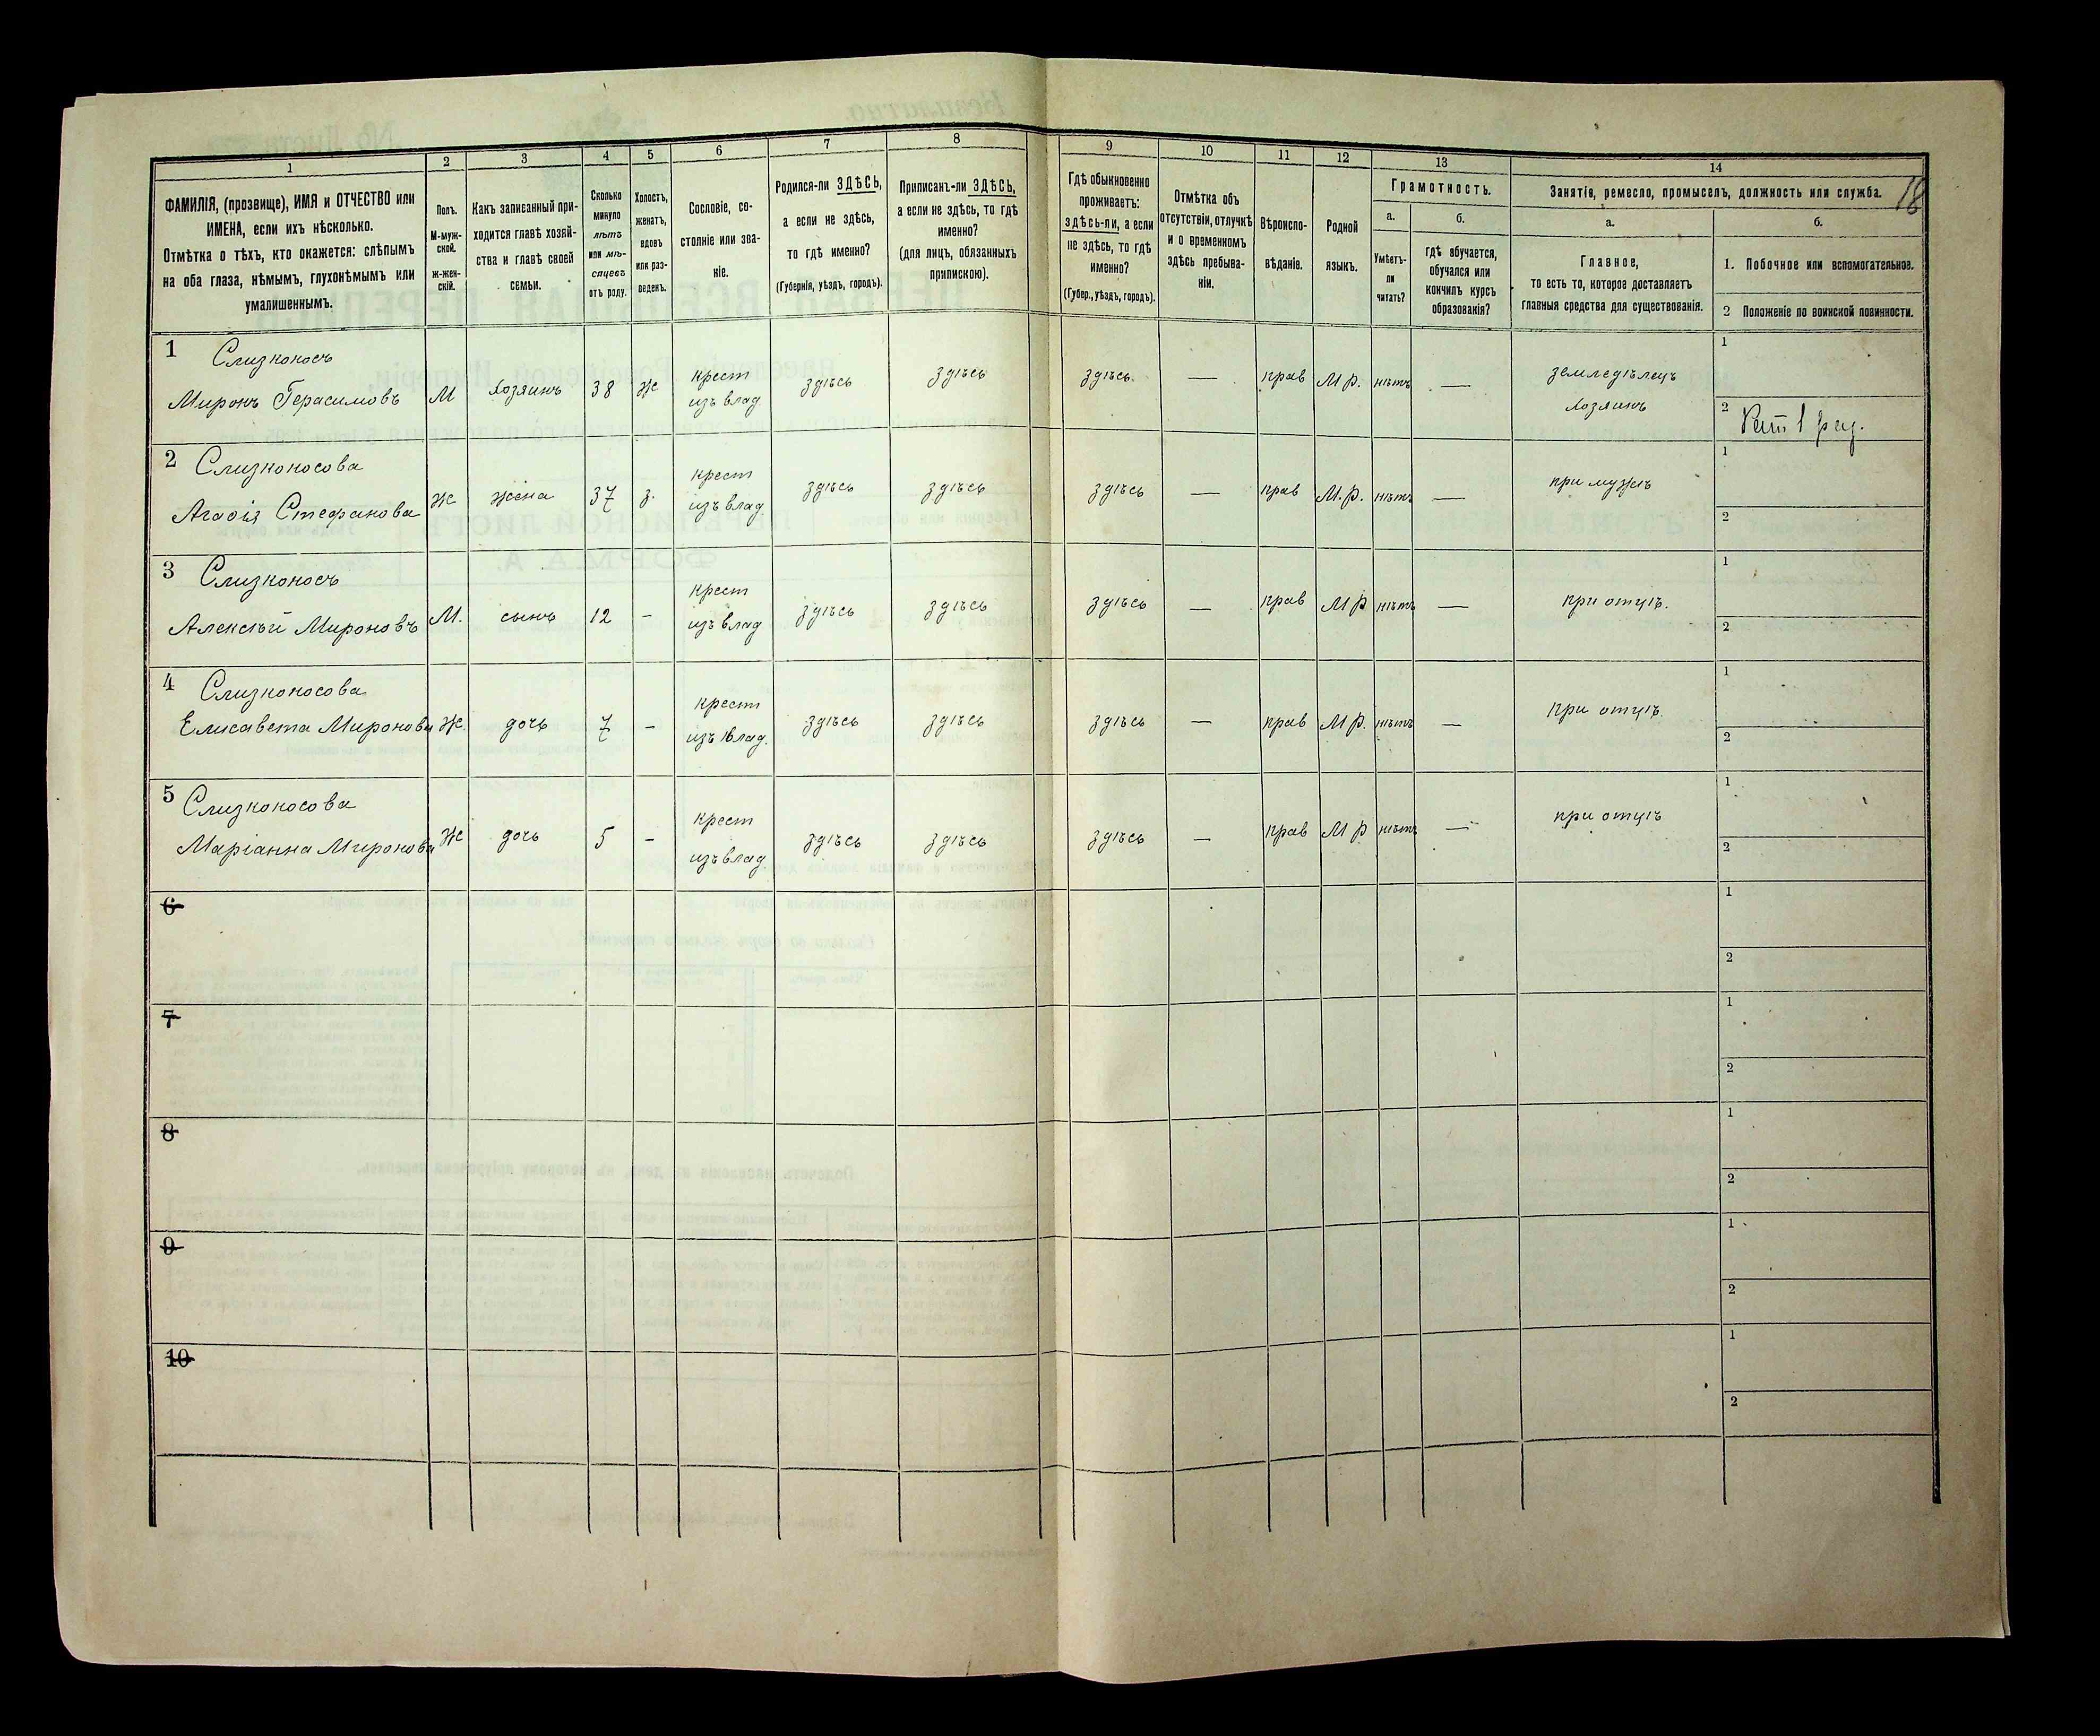 18
1 2 3 4 5 6 7 8 9 10 11 12 13 14
ФАМИЛІЯ, (прозвище), ИМЯ и ОТЧЕСТВО или
ИМЕНА, если ихъ нѣсколько.
Отмѣтка о тѣхъ, кто окажется: слѣпымъ
на оба глаза, нѣмымъ, глухонѣмымъ или
умалишеннымъ.
Полъ.
М-муж-
ской.
ж-жен-
скій.
Какъ записанный при-
ходится главѣ хозяй-
ства и главѣ своей
семьи.
Сколько
минуло
лѣтъ
или мѣ-
сяцевъ
отъ роду.
Холостъ,
женатъ,
вдовъ
или раз-
веденъ.
Сословіе, со-
стояніе или зва-
ніе.
Родился-ли ЗДѢСЬ,
а если не здѣсь,
то гдѣ именно?
(Губернія, уѣздъ, городъ).
Приписанъ-ли ЗДѢСЬ,
а если не здѣсь, то гдѣ
именно?
(для лицъ, обязанныхъ
припискою).
Гдѣ обыкновенно
проживаетъ:
здѣсь-ли, а если
не здѣсь, то гдѣ
именно?
(Губер., уѣздъ, городъ).
Отмѣтка объ
отсутствіи, отлучкѣ
и о временномъ
здѣсь пребыва-
ніи.
Вѣроиспо-
вѣданіе.
Родной
языкъ.
Грамотность.
а.
Умѣетъ-
ли
читать?
б.
гдѣ обучается,
обучался или
кончилъ курсъ
образованія?
Занятія, ремесло, промыселъ, должность или служба.
а.
Главное,
то есть то, которое доставляетъ
главныя средства для существованія.
б.
1. Побочное или вспомогательное.
2 Положеніе по воинской повинности.
1 Слизконосъ
Миронъ Герасимовъ М Хозяинъ 38 ж крест изъ влад. здѣсь здѣсь здѣсь. — прав М р. нѣтъ — земледѣлецъ хозяинъ 1
2 Рат 1 раз.
2 Слизконосова
Агафія Стефанова ж жена 37 з. крест изъ влад. здѣсь здѣсь здѣсь — прав М. р. нѣтъ — при мужѣ 1
2
3 Слизконосъ
Алексѣй Мироновъ М. сынъ 12 - крест изъ влад здѣсь здѣсь здѣсь — прав М р нѣтъ — при отцѣ. 1
2
4 Слизконосова
Елисавета Миронова Ж. дочь 7 - крест изъ влад. здѣсь здѣсь здѣсь — прав М р. нѣтъ — при отцѣ 1
2
5 Слизконосова
Маріанна Миронова Ж дочь 5 - крест изъ влад. здѣсь здѣсь здѣсь — прав М р нѣтъ — при отцѣ 1
2
6 1
2
7 1
2
8 1
2
9 1
2
10 1
2